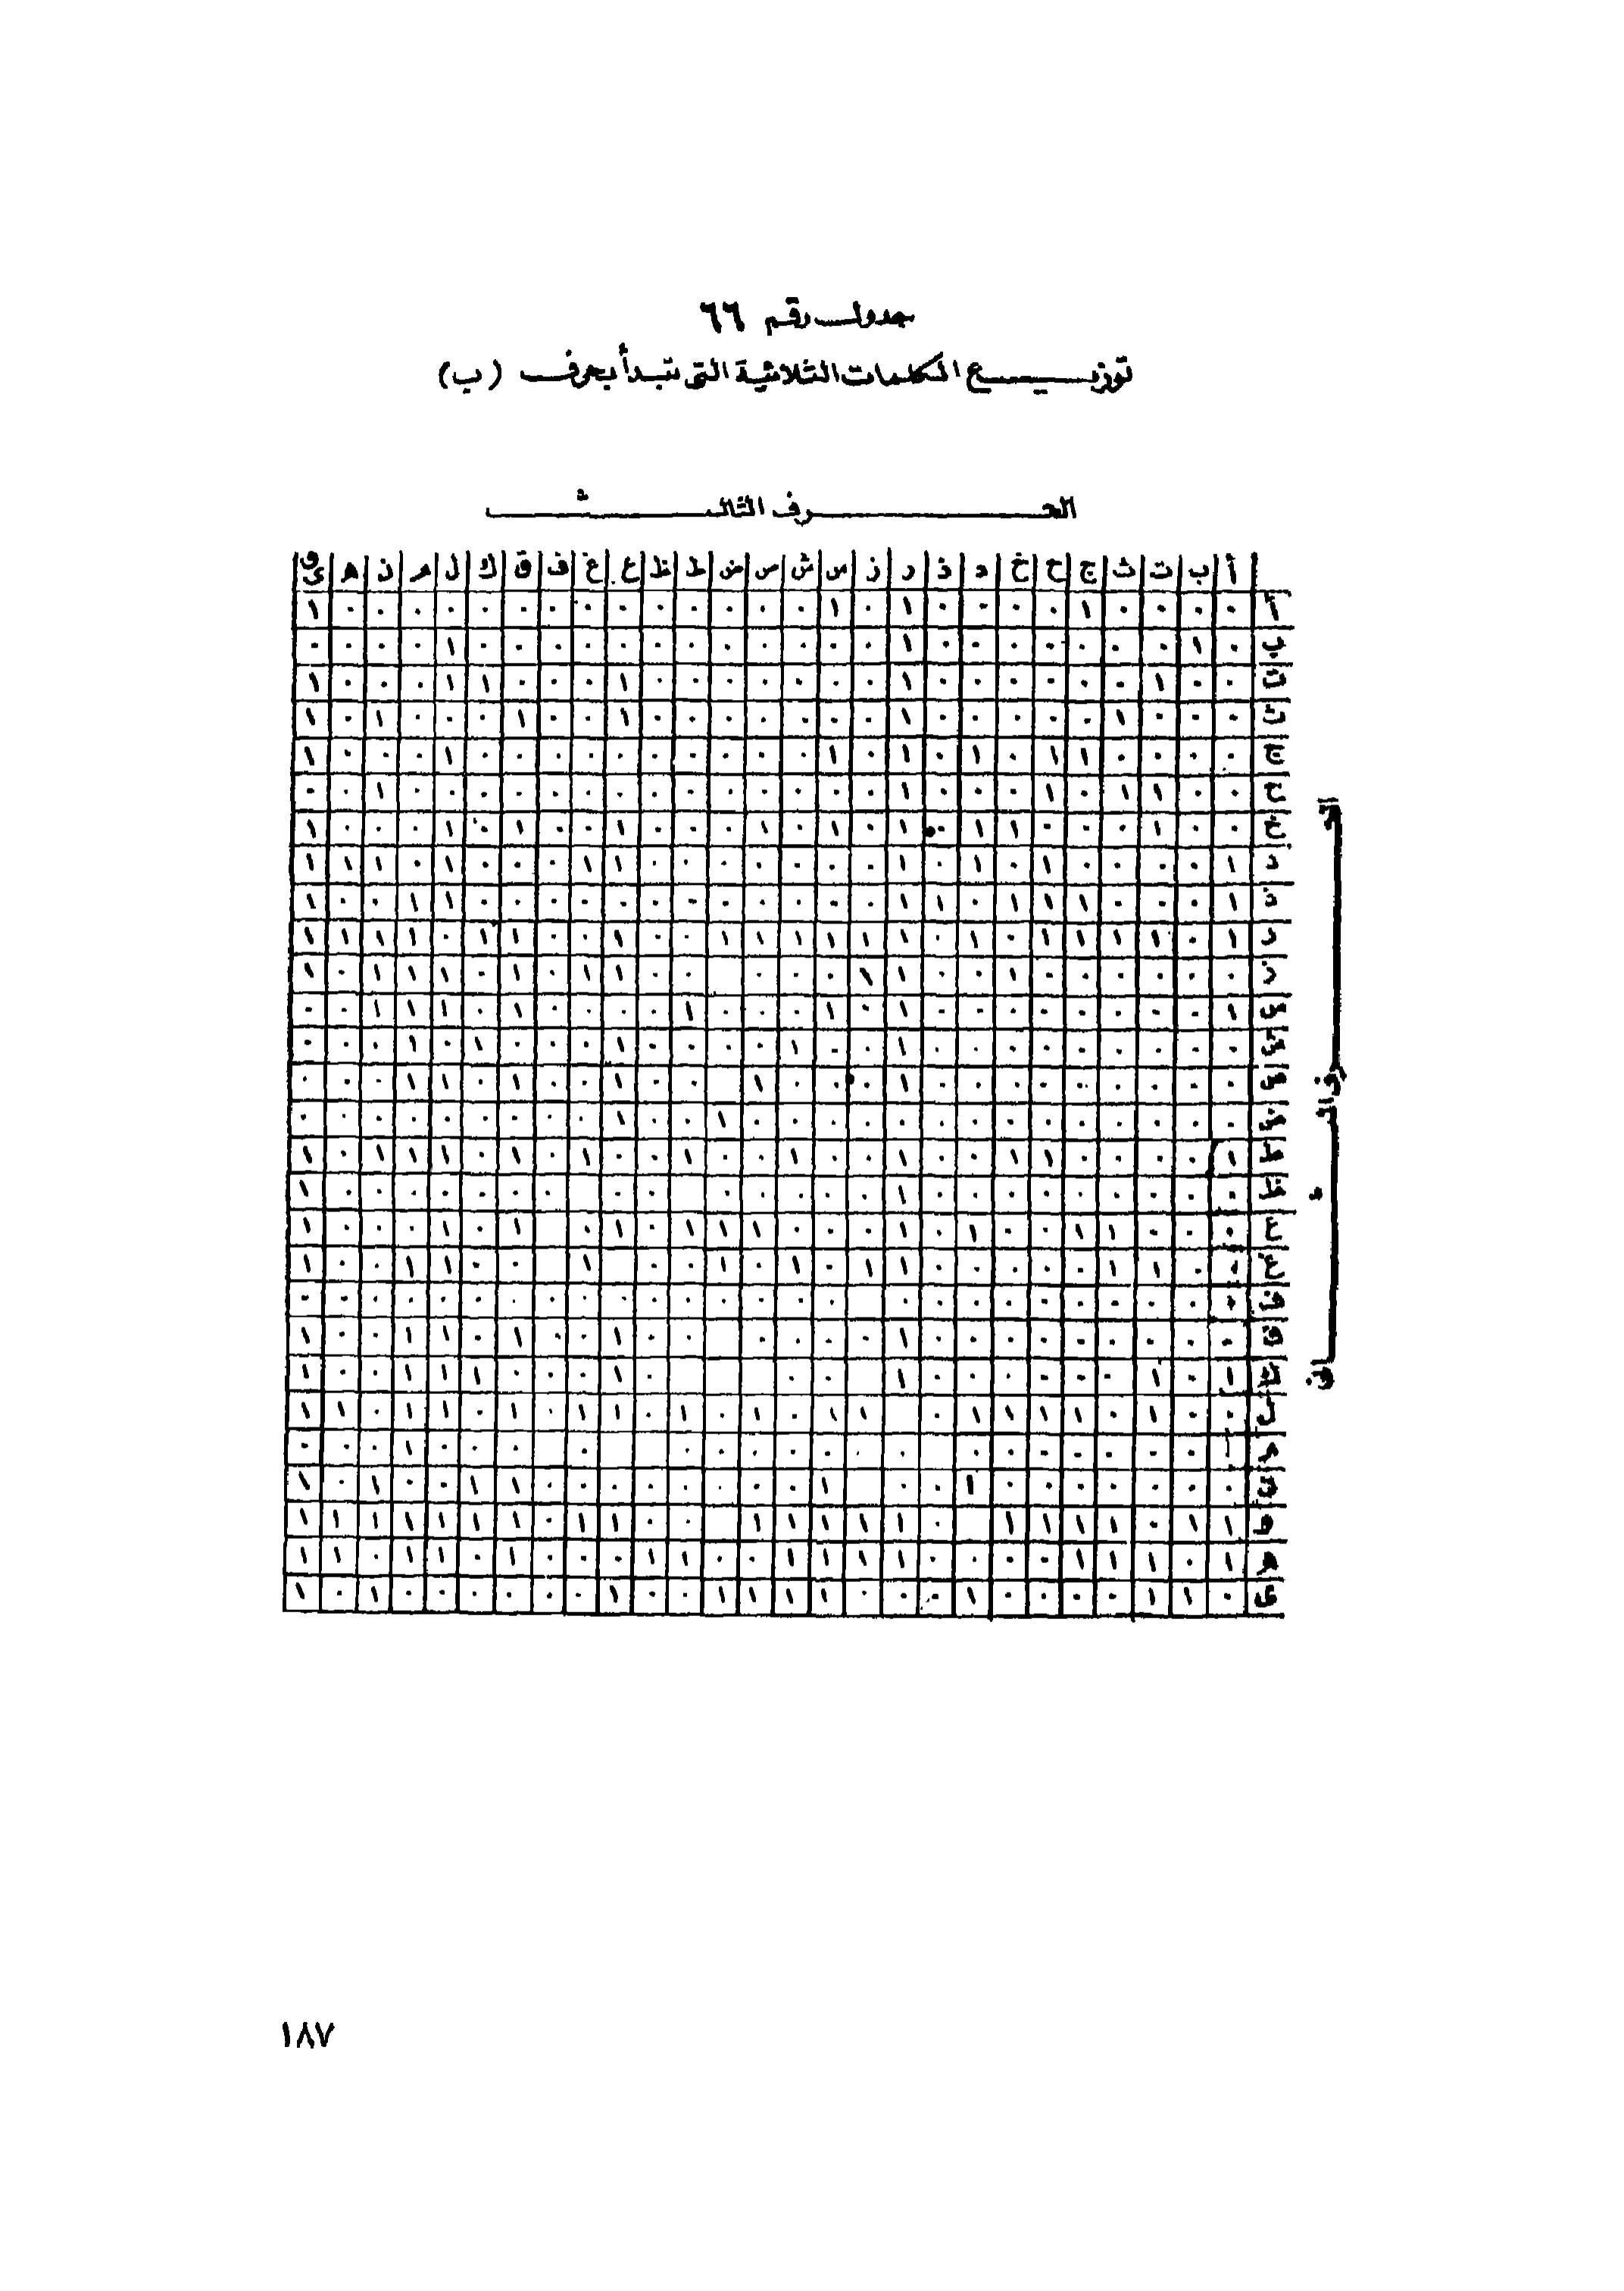 جدول رقم ٦٦
توزيع الكلمات الثلاثية التى تبدأ بحرف (ب)
الحرف الثالث
أ ب ت ث ج ح خ د ذ ر ز س ش ص ض ط ظ ع غ ف ق ك ل م ن ه و ى
أ ٠ ٠ ٠ ٠ ١ ٠ ٠ ٠ ٠ ١ ٠ ١ ٠ ٠ ٠ ٠ ٠ ٠ ٠ ٠ ٠ ٠ ٠ ٠ ٠ ٠ ١
ب ٠ ١ ٠ ٠ ٠ ٠ ٠ ٠ ٠ ١ ٠ ٠ ٠ ٠ ٠ ٠ ٠ ٠ ٠ ٠ ٠ ٠ ١ ٠ ٠ ٠ ٠
ت ٠ ٠ ١ ٠ ٠ ٠ ٠ ٠ ٠ ١ ٠ ٠ ٠ ٠ ٠ ٠ ٠ ١ ٠ ٠ ٠ ١ ١ ٠ ٠ ٠ ١
ث ٠ ٠ ٠ ١ ٠ ٠ ٠ ٠ ٠ ١ ٠ ٠ ٠ ٠ ٠ ٠ ٠ ١ ٠ ٠ ١ ٠ ٠ ٠ ١ ٠ ١
ج ٠ ٠ ٠ ٠ ١ ١ ٠ ١ ٠ ١ ٠ ١ ٠ ٠ ٠ ٠ ٠ ٠ ٠ ٠ ٠ ٠ ١ ٠ ٠ ٠ ١
ح ٠ ٠ ١ ١ ٠ ١ ٠ ٠ ٠ ١ ٠ ٠ ٠ ٠ ٠ ٠ ٠ ٠ ٠ ٠ ٠ ٠ ٠ ٠ ١ ٠ ٠
خ ٠ ٠ ١ ٠ ٠ ٠ ١ ١ ٠ ١ ٠ ١ ٠ ١ ٠ ٠ ٠ ١ ٠ ٠ ١ ٠ ١ ٠ ٠ ٠ ١
د ١ ٠ ٠ ٠ ٠ ١ ٠ ١ ٠ ١ ٠ ٠ ٠ ٠ ٠ ٠ ٠ ١ ١ ٠ ٠ ٠ ١ ٠ ١ ١ ١
ذ ١ ٠ ٠ ٠ ١ ١ ١ ٠ ١ ١ ٠ ٠ ٠ ٠ ٠ ٠ ٠ ٠ ٠ ٠ ٠ ٠ ١ ١ ٠ ٠ ١
ر ١ ٠ ١ ١ ١ ١ ٠ ١ ٠ ١ ١ ١ ١ ١ ١ ٠ ٠ ١ ٠ ٠ ١ ١ ٠ ١ ١ ١ ١
ز ٠ ٠ ٠ ٠ ٠ ٠ ١ ٠ ٠ ١ ١ ٠ ٠ ٠ ٠ ٠ ١ ١ ٠ ١ ٠ ١ ١ ١ ٠ ١
س ١ ٠ ٠ ٠ ٠ ٠ ٠ ٠ ٠ ١ ٠ ١ ٠ ٠ ٠ ١ ٠ ٠ ٠ ٠ ١ ٠ ١ ١ ١ ٠ ٠
ش ٠ ٠ ٠ ٠ ٠ ٠ ٠ ٠ ٠ ١ ٠ ٠ ١ ٠ ٠ ٠ ٠ ١ ٠ ٠ ٠ ١ ٠ ١ ٠ ٠ ٠
ص ٠ ٠ ٠ ٠ ٠ ٠ ٠ ٠ ٠ ١ ٠ ٠ ٠ ١ ٠ ٠ ١ ٠ ٠ ١ ٠ ١ ١ ٠ ٠ ٠
ض ٠ ٠ ٠ ٠ ٠ ٠ ٠ ٠ ٠ ٠ ٠ ٠ ٠ ٠ ١ ٠ ٠ ١ ٠ ٠ ٠ ٠ ٠ ٠ ٠ ٠ ٠
ط ١ ٠ ٠ ٠ ٠ ١ ١ ٠ ٠ ١ ٠ ٠ ١ ٠ ٠ ١ ٠ ٠ ١ ٠ ١ ٠ ١ ١ ١ ٠ ١
ظ ٠ ٠ ٠ ٠ ٠ ٠ ٠ ٠ ٠ ١ ٠ ٠ ٠ ٠ ٠ ٠ ٠ ٠ ٠ ٠ ٠ ٠ ٠ ٠ ١
ع ٠ ٠ ٠ ١ ١ ٠ ٠ ١ ٠ ١ ٠ ٠ ٠ ١ ١ ١ ٠ ١ ٠ ١ ٠ ١ ٠ ٠ ٠ ١
غ ٠ ٠ ١ ١ ٠ ٠ ٠ ٠ ٠ ١ ١ ٠ ١ ٠ ١ ٠ ٠ ١ ٠ ٠ ١ ١ ٠ ٠ ١
ف ٠ ٠ ٠ ٠ ٠ ٠ ٠ ٠ ٠ ٠ ٠ ٠ ٠ ٠ ٠ ٠ ٠ ٠ ٠ ٠ ٠ ٠ ٠ ٠ ٠ ٠
ق ٠ ٠ ٠ ٠ ٠ ٠ ٠ ٠ ٠ ١ ٠ ٠ ٠ ٠ ٠ ٠ ١ ٠ ٠ ١ ٠ ١ ١ ٠ ٠ ١
ك ١ ٠ ١ ٠ ٠ ٠ ٠ ٠ ٠ ١ ٠ ٠ ٠ ١ ٠ ٠ ٠ ١ ١ ١ ٠ ٠ ١
ل ٠ ٠ ١ ٠ ١ ١ ١ ١ ٠ ١ ١ ٠ ١ ٠ ١ ٠ ١ ١ ٠ ١ ٠ ١ ١ ٠ ١ ١
م ٠ ٠ ٠ ٠ ٠ ٠ ٠ ٠ ٠ ٠ ٠ ٠ ٠ ٠ ٠ ٠ ٠ ٠ ١ ٠ ٠ ٠
ن ٠ ٠ ٠ ٠ ٠ ٠ ٠ ١ ٠ ٠ ١ ٠ ٠ ٠ ٠ ٠ ٠ ٠ ٠ ١ ١ ٠ ٠ ١ ٠ ١
و ١ ١ ٠ ١ ١ ١ ١ ٠ ١ ١ ١ ١ ١ ٠ ٠ ١ ١ ٠ ١ ١ ١ ١ ١ ١ ١
ه ١ ٠ ١ ١ ١ ٠ ٠ ٠ ٠ ١ ١ ١ ١ ٠ ٠ ١ ١ ٠ ٠ ٠ ١ ٠ ١ ١ ٠ ١ ١
ى ٠ ١ ١ ٠ ٠ ٠ ٠ ١ ٠ ٠ ٠ ١ ١ ١ ١ ٠ ٠ ١ ٠ ٠ ٠ ٠ ٠ ٠ ١ ٠ ١
الحرف الثانى
١٨٧